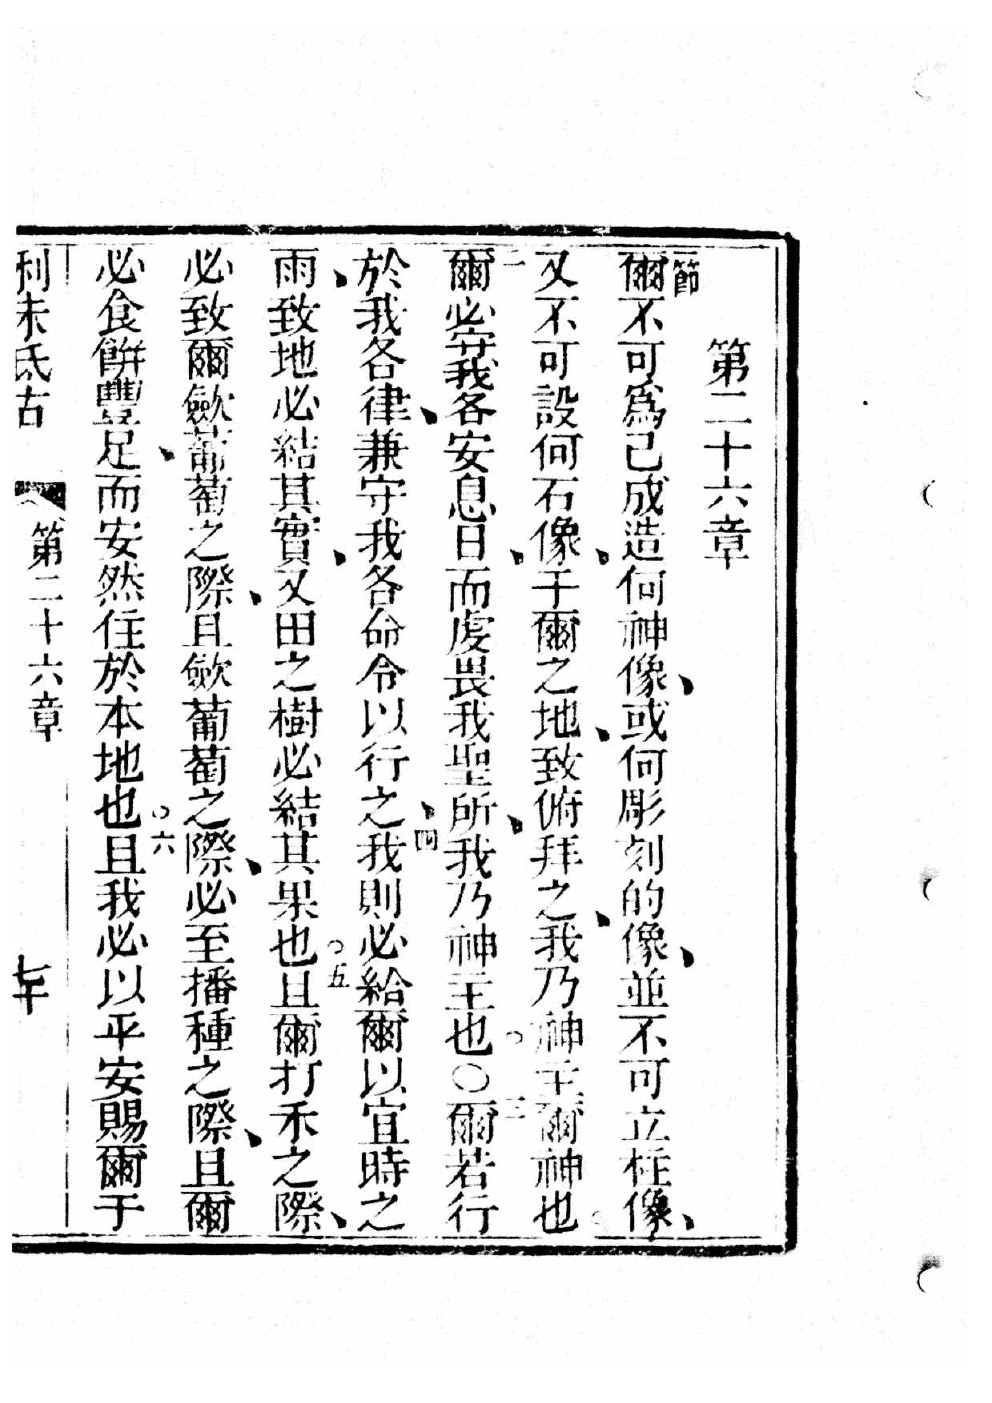 第二十六章
一節
爾不可為已成造何神像、或何彫刻的像、並不可立柱像、
又不可設何石像、于爾之地、致俯拜之、我乃神主爾神也。
二爾必守我各安息日、而虔畏我聖所、我乃神主也。〇三爾若行
於我各律、兼守我各命令以行之、四我則必給爾以宜時之
雨、致地必結其實、又田之樹必結其果也。五且爾打禾之際、
必致爾歛葡萄之際、且歛葡萄之際、必至播種之際、且爾
必食餅豐足、而安然住於本地也。六且我必以平安賜爾于
利未氏古 第二十六章 七十